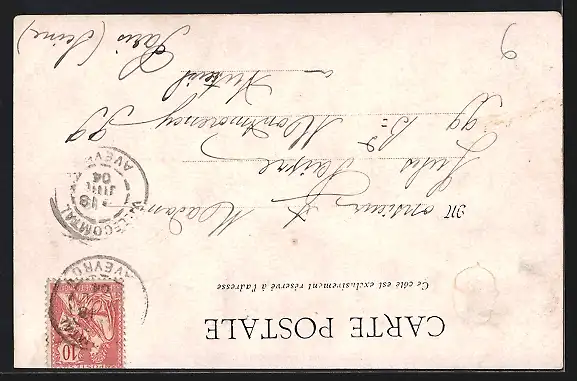 CARTE POSTALE
Ce côté est exclusivement réservé à l'adresse
Monsieur & Madame
Jules Faivre
99 Bd Montmorency 99
a Auteuil
Paris (Seine)
9
AVEYRON
JUIL
04
AVEYRON
10
POSTES